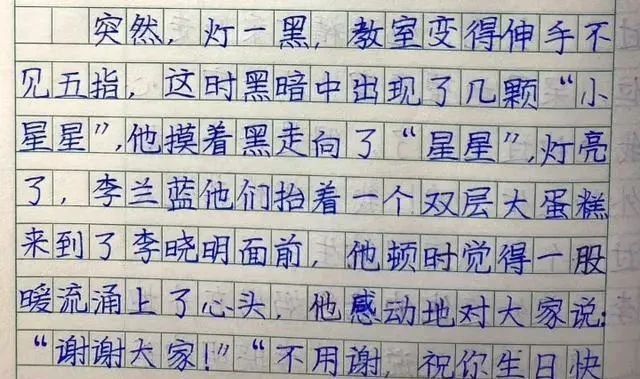 突然，灯一黑，教室变得伸手不
见五指，这时黑暗中出现了几颗“小
星星”，他摸着黑走向了“星星”，灯亮
了，李兰蓝他们抬着一个双层大蛋糕
来到了李晓明面前，他顿时觉得一股
暖流涌上了心头，他感动地对大家说：
“谢谢大家！”“不用谢，祝你生日快